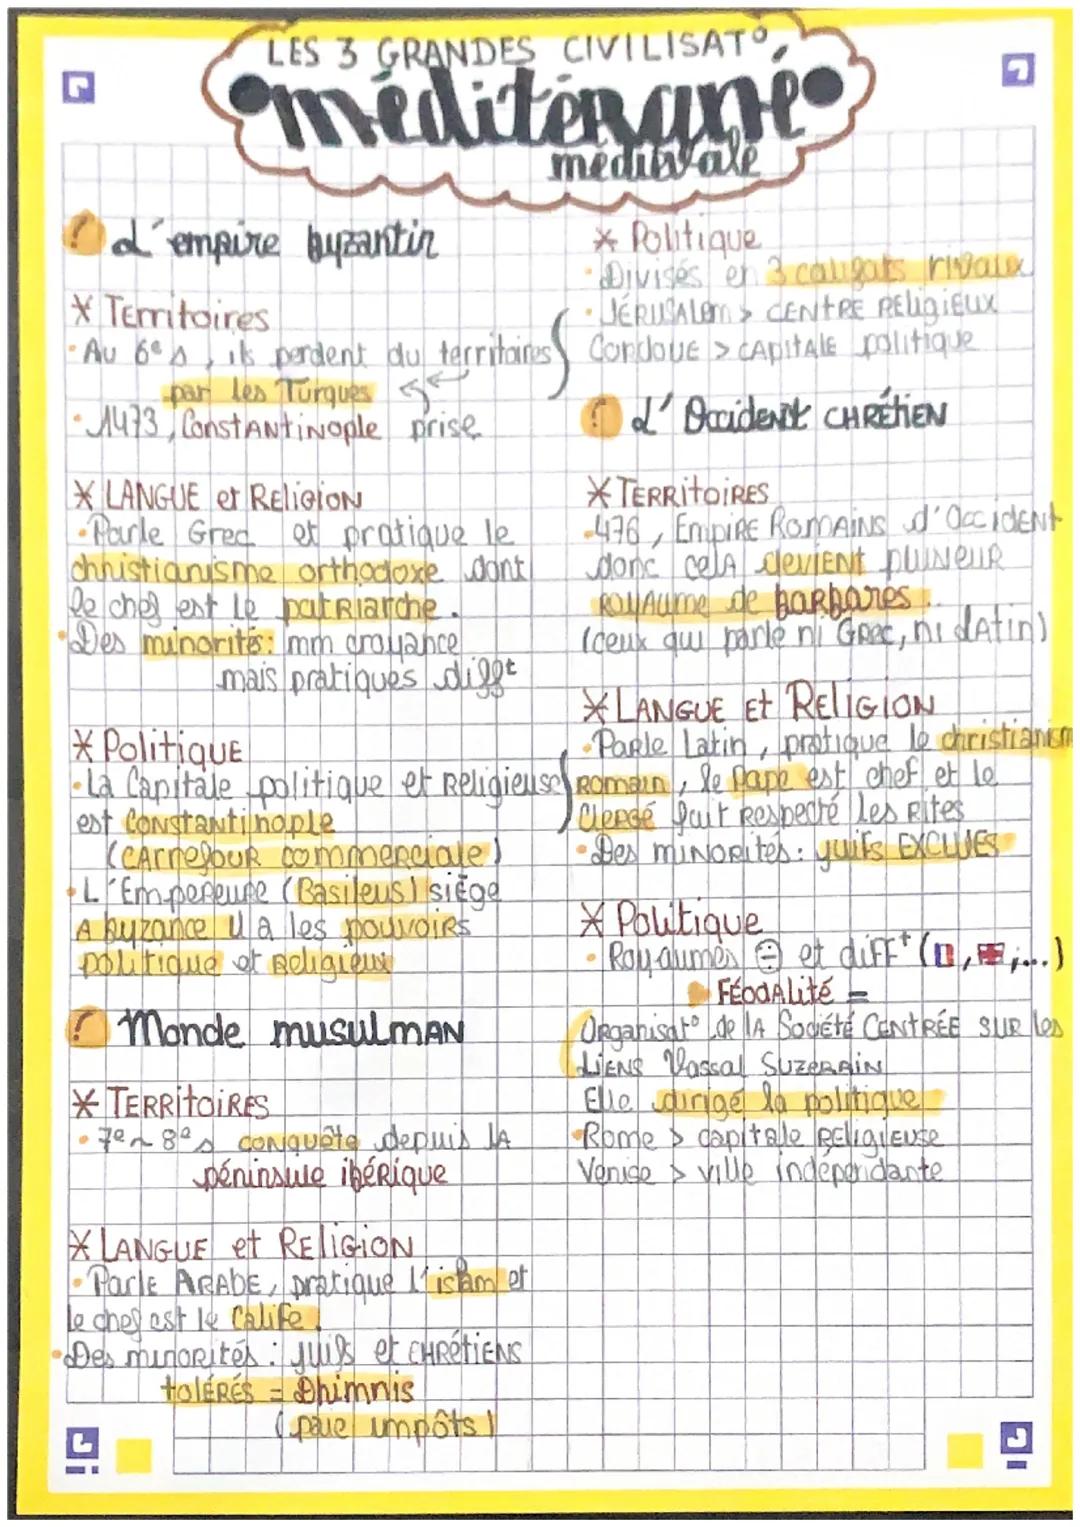 LES 3 GRANDES CIVILISAT°
méditérgané
médievale
L'empire byzantin
* Territoires
• Au 6e s, ils perdent du territoires
par les Turques
• 1473, Constantinople prise
* LANGUE et Religion
• Parle Grec et pratique le
christianisme orthodoxe dont
le chef est le patriarche.
• Des minorités: mm croyance
mais pratiques difft
* Politique
• La Capitale politique et Religieuse
est Constantinople
(carrefour commerciale)
• L'Empereure (Basileus) siège
A byzance il a les pouvoirs
politique et Religieux
Monde musulman
* Territoires
• 7e ~ 8e s conquête depuis la
péninsule ibérique
* Langue et Religion
• Parle Arabe, pratique l'islam et
le chef est le Calife.
• Des minorités : juifs et chrétiens
tolérés = Dhimnis
(paie impôts)
* Politique
• Divisés en 3 califats rivaux
• Jérusalem > centre religieux
Cordoue > capitale politique
L'Occident chrétien
* Territoires
• 476, Empire Romains d'Occident
donc cela devient pluineur
royaume de barbares.
(ceux qui parle ni Grec, ni Latin)
* Langue et Religion
• Parle Latin, pratique le christianism
romain, le Pape est chef et le
Clergé fait respecté les rites
• Des minorités: juifs EXCLUES
* Politique
• Royaumes et diff+ ( , ,...)
Féodalité =
Organisat° de la Société CENTRÉE sur les
Liens Vassal Suzerain
Elle dirigé la politique
• Rome > capitale religieuse
Venise > ville indépendante